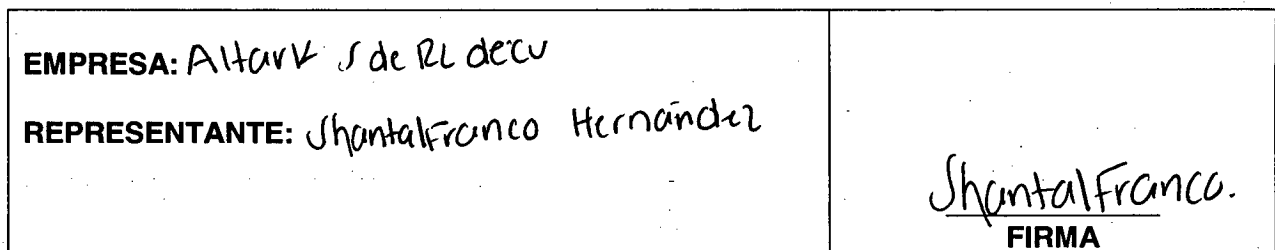 EMPRESA: Altark S de RL de cv
REPRESENTANTE: Shantal Franco Hernández
Shantal Franco.
FIRMA